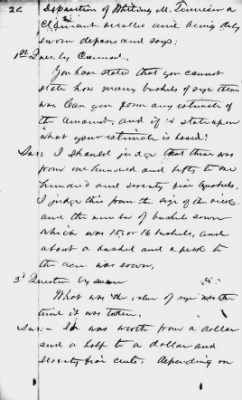 22 Deposition of Whiting M. Tennier a
Claimant recalled and being duly
sworn deposes and says:
1st Ques by Counsel.
You have stated that you cannot
state how many bushels of rye there
was Can you form any estimate of
the amount, and if so state upon
what your estimate is based?
Ans: I should judge that there was
from one hundred and fifty to one
hundred and seventy five bushels.
I judge this from the size of the
and the number of bushels sown
which was 15, or 16 bushels, and
about a bushel and a peck to
the acre was sown,
3d Question by
What was the value of rye
time it was taken.
Ans: It was worth from a dollar
and a half to a dollar and
seventy five cents. depending on